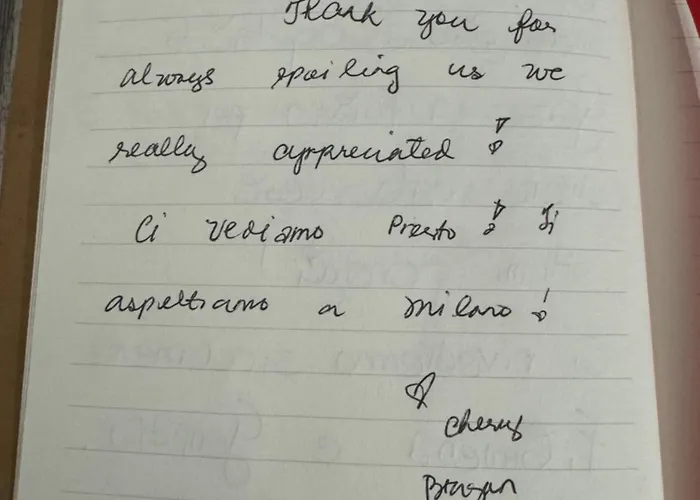 Thank you for
always spoiling us we
really appreciated !
Ci vediamo Presto ! Ti
aspettiamo a milano !